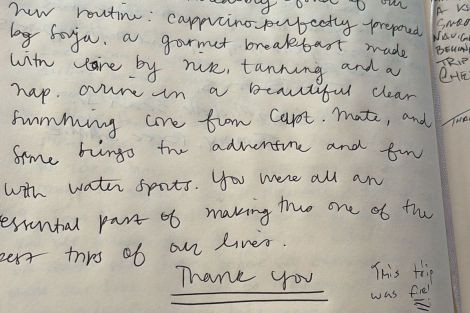 of our
new routine: cappuccino perfectly prepared
by Sonja, a gourmet breakfast made
with love by Nik, tanning and a
nap. Arrive in a beautiful clear
swimming cove from Capt. Mate, and
Sime brings the adventure and fun
with water sports. You were all an
essential part of making this one of the
best trips of our lives.
Thank you
This trip
was fire!
TRIP